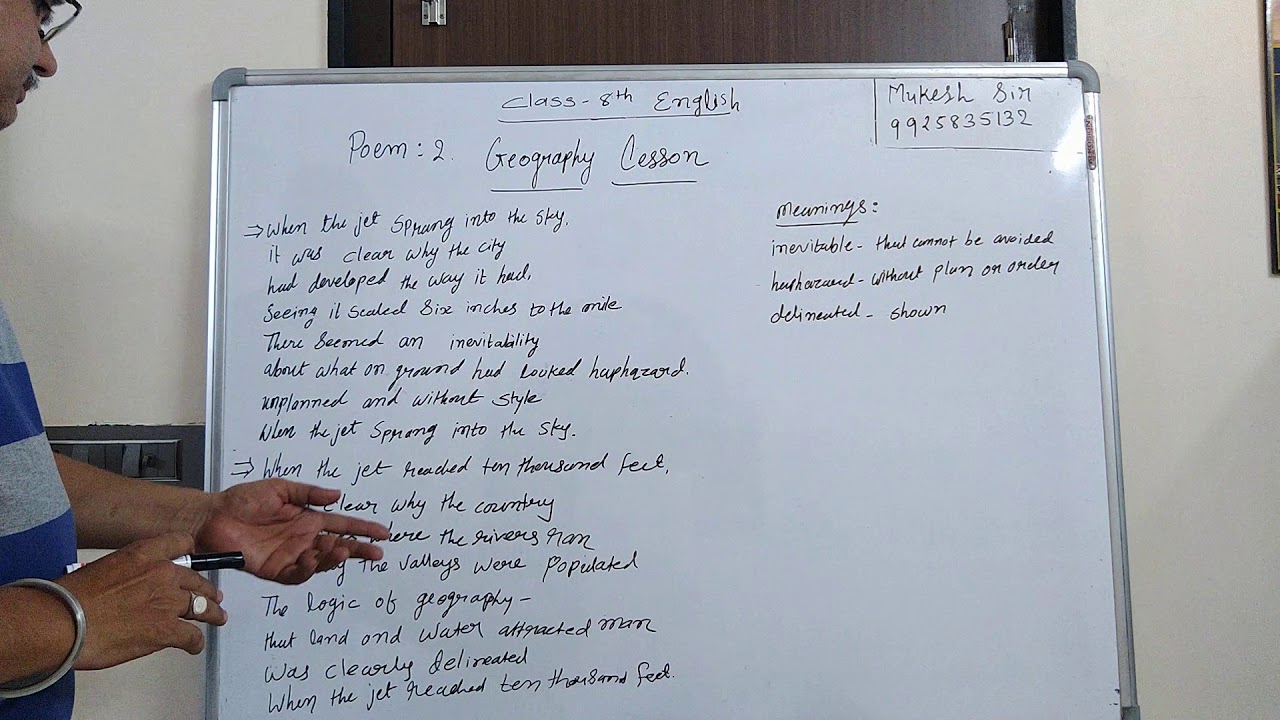 Class - 8th English
Mukesh Sir
9925835132
Poem : 2. Geography Lesson
⇒ When the jet sprang into the sky,
it was clear why the city
had developed the way it had,
Seeing it scaled six inches to the mile
There seemed an inevitability
about what on ground had looked haphazard.
unplanned and without style
When the jet sprang into the sky.
⇒ When the jet reached ten thousand feet,
clear why the country
where the rivers ran
the valleys were populated
The logic of geography -
that land and water attracted man
was clearly delineated
When the jet reached ten thousand feet.
Meanings :
inevitable - that cannot be avoided
haphazard - without plan or order
delineated - shown